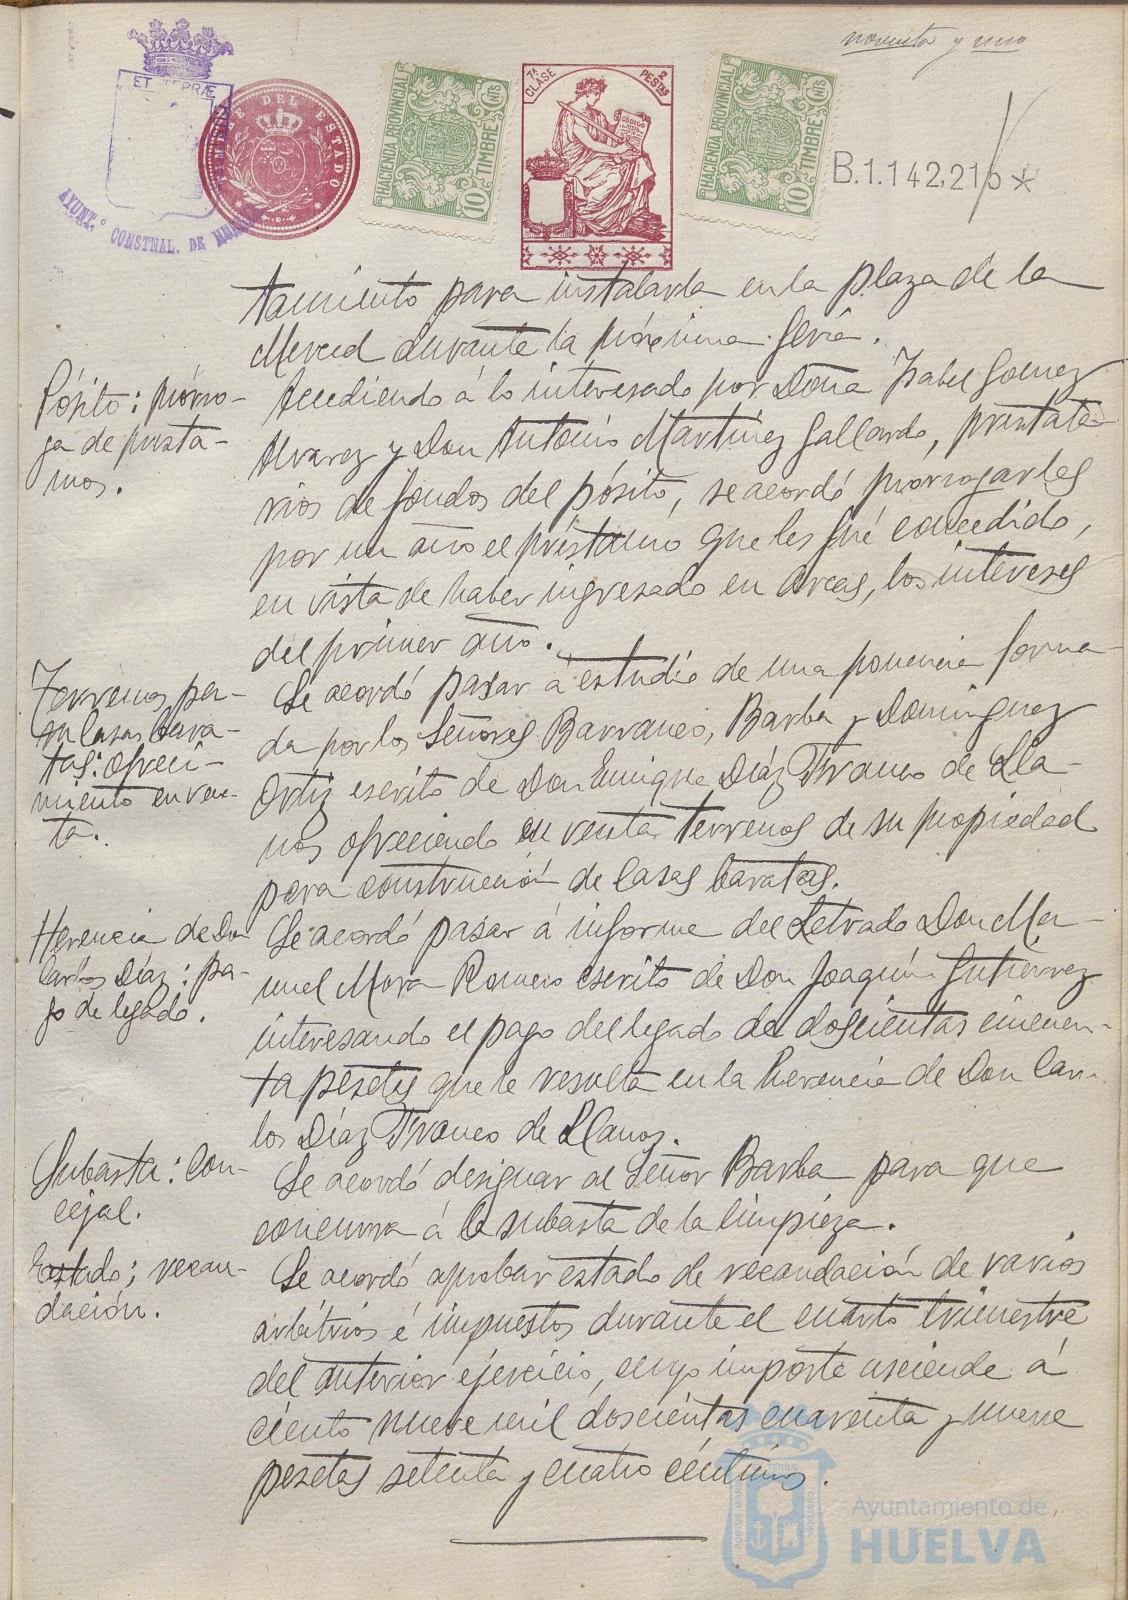 noventa y uno
ET TERRÆ
AYUNT.º CONSTNAL. DE HUELVA
TIMBRE DEL ESTADO
HACIENDA PROVINCIAL
10 CNTS
TIMBRE
7ª CLASE
2 PESTAS
CÓDIGO
HACIENDA PROVINCIAL
10 CNTS
TIMBRE
B.1.142,21
tamiento para instalarla en la plaza de la
Merced durante la próxima feria.
Pósito: prórro-
ga de présta-
mos.
Accediendo á lo interesado por Doña Isabel Gomez
Alvarez y Don Antonio Martínez Gallardo, prestata-
rios de fondos del pósito, se acordó prorrogarles
por un año el préstamo que les fué concedido,
en vista de haber ingresado en arcas, los intereses
del primer año.
Terrenos pa-
ra casas bara-
tas: ofreci-
miento en ven-
ta.
Se acordó pasar á estudio de una ponencia forma-
da por los Señores Barranco, Barba y Dominguez
Ortiz escrito de Don Enrique Díaz Franco de Lla-
nos ofreciendo en venta terrenos de su propiedad
para construcción de casas baratas.
Herencia de Don
Carlos Díaz: pa-
go de legado.
Se acordó pasar á informe del Letrado Don Ma-
nuel Mora Romero escrito de Don Joaquín Gutiérrez
interesando el pago del legado de doscientas cincuen-
ta pesetas que le resulta en la herencia de Don Car-
los Díaz Franco de Llanos.
Subasta: Con-
cejal.
Se acordó designar al Señor Barba para que
concurra á la subasta de la limpieza.
Estado; recau-
dación.
Se acordó aprobar estado de recaudación de varios
arbitrios é impuestos durante el cuarto trimestre
del anterior ejercicio, cuyo importe asciende á
ciento nueve mil doscientas cuarenta y nueve
pesetas setenta y cuatro céntimos.
Ayuntamiento de
HUELVA